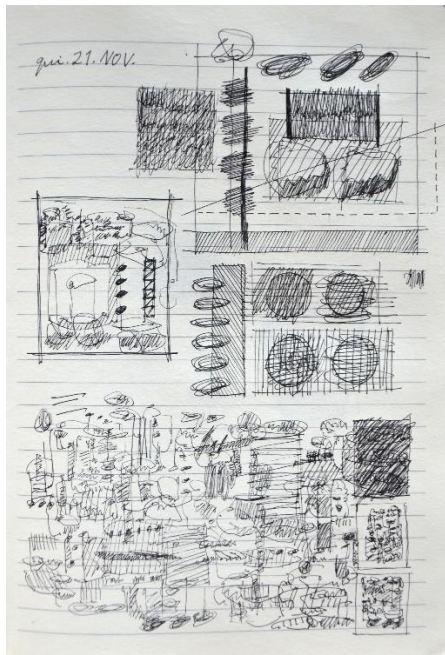 qui. 21. NOV.